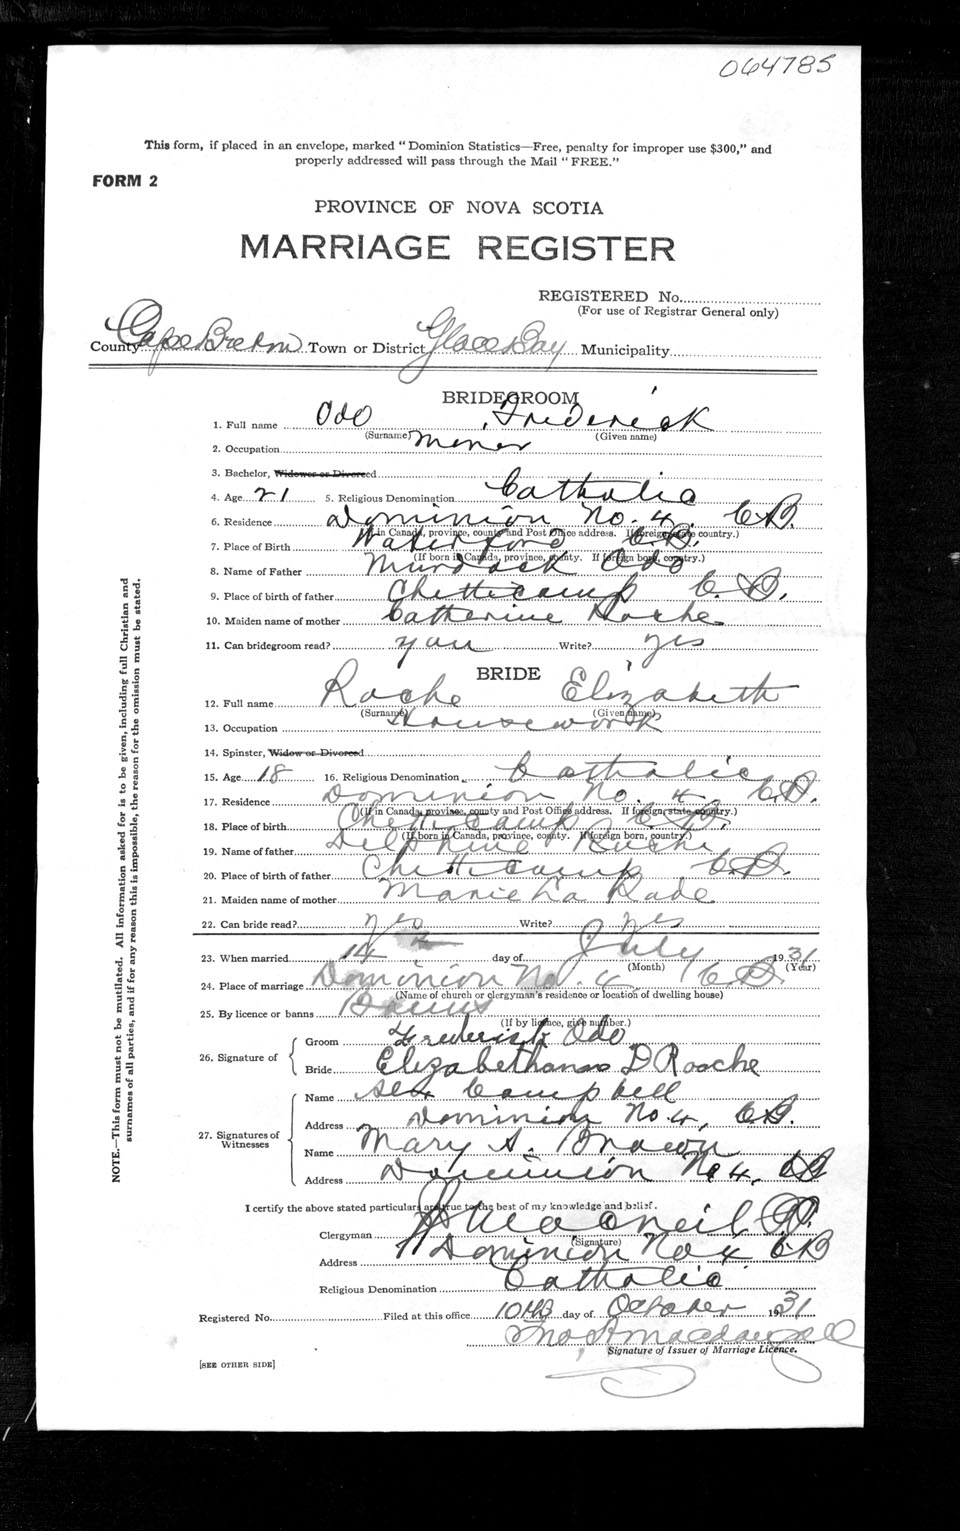 064785
This form, if placed in an envelope, marked "Dominion Statistics—Free, penalty for improper use $300," and
properly addressed will pass through the Mail "FREE."
FORM 2
PROVINCE OF NOVA SCOTIA
MARRIAGE REGISTER
REGISTERED No.
(For use of Registrar General only)
County Cape Breton Town or District Glace Bay Municipality
BRIDEGROOM
1. Full name Odo, Frederick
(Surname) (Given name)
2. Occupation Miner
3. Bachelor, Widower or Divorced
4. Age 21 5. Religious Denomination Catholic
6. Residence Dominion No. 4. C.B.
(If in Canada, province, county and Post Office address. If foreign, state country.)
7. Place of Birth Waterford C.B.
(If born in Canada, province, county. If foreign born, country.)
8. Name of Father Murdock Odo
9. Place of birth of father Chetticamp C.B.
10. Maiden name of mother Catherine Roche
11. Can bridegroom read? Write? Yes
BRIDE
12. Full name Roche Elizabeth
(Surname) (Given name)
13. Occupation Housework
14. Spinster, Widow or Divorced
15. Age 18 16. Religious Denomination Catholic
17. Residence Dominion No. 4 C.B.
(If in Canada, province, county and Post Office address. If foreign, state country.)
18. Place of birth Chetticamp C.B.
(If born in Canada, province, county. If foreign born, country.)
19. Name of father Delphine Roche
20. Place of birth of father Chetticamp C.B.
21. Maiden name of mother Marie La Rade
22. Can bride read? Yes Write? Yes
23. When married 14 day of July 1931
(Month) (Year)
24. Place of marriage Dominion No. 4 C.B.
(Name of church or clergyman's residence or location of dwelling house)
25. By licence or banns Banns
(If by licence, give number.)
26. Signature of
Groom Frederick Odo
Bride Roache
27. Signatures of Witnesses
Name Campbell
Address Dominion No. 4, C.B.
Name Mary A. Brown
Address Dominion No 4, CB
I certify the above stated particulars are true to the best of my knowledge and belief.
Clergyman MacNeil P.P.
(Signature)
Address Dominion No 4 CB
Religious Denomination Catholic
Registered No. Filed at this office 10th day of October 1931
Signature of Issuer of Marriage Licence.
[SEE OTHER SIDE]
NOTE.—This form must not be mutilated. All information asked for is to be given, including full Christian and
surnames of all parties, and if for any reason this is impossible, the reason for the omission must be stated.